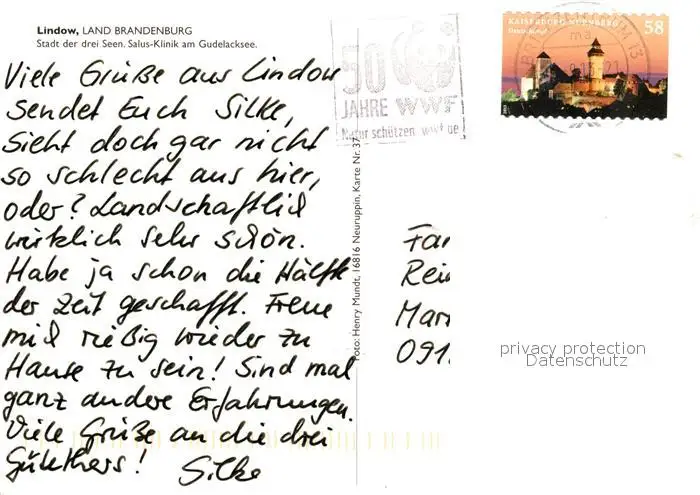 Lindow, LAND BRANDENBURG
Stadt der drei Seen. Salus-Klinik am Gudelacksee.
Viele Grüße aus Lindow
sendet Euch Silke,
Sieht doch gar nicht
so schlecht aus hier,
oder? Landschaftlich
wirklich sehr schön.
Habe ja schon die Hälfte
der Zeit geschafft. Freue
mich rießig wieder zu
Hause zu sein! Sind mal
ganz andere Erfahrungen.
Viele Grüße an die drei
Gültthers!
Silke
Foto: Henry Mundt, 16816 Neuruppin, Karte Nr. 37
50
JAHRE WWF
Natur schützen wwf de
KAISERBURG NÜRNBERG
Deutschland
58
BR
13
ma
21
Fam
Rei
Mar
091
privacy protection
Datenschutz